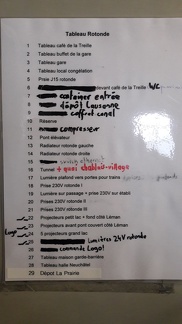 Tableau Rotonde
1 Tableau café de la Treille
2 Tableau buffet de la gare
3 Tableau gare
4 Tableau local congélation
5 Praie J15 rotonde
6 devant café de la Treille WC
7 container entrée
8 dépôt Lausanne
9 coffret canal
10 Réserve
11 compresseur
12 Pont élévateur
13 Radiateur rotonde gauche
14 Radiateur rotonde droite
15
16 Tunnel + quai chablais-village
17 Lumière plafond vers portes pour trains
18 Prises 230V rotonde I
19 Lumière sur passage + prise 230V sur établi
20 Prises 230V rotonde II
21 Prises 230V rotonde III
22 Projecteurs petit lac + fond côté Léman
23 Projecteurs avant pont couvert côté Léman
Logo 24 5 projecteurs grand lac
25 Lumières 24V rotonde
26 commande Logo!
27 Tableau maison garde-barrière
28 Tableau halle Neuchâtel
29 Dépôt La Prairie